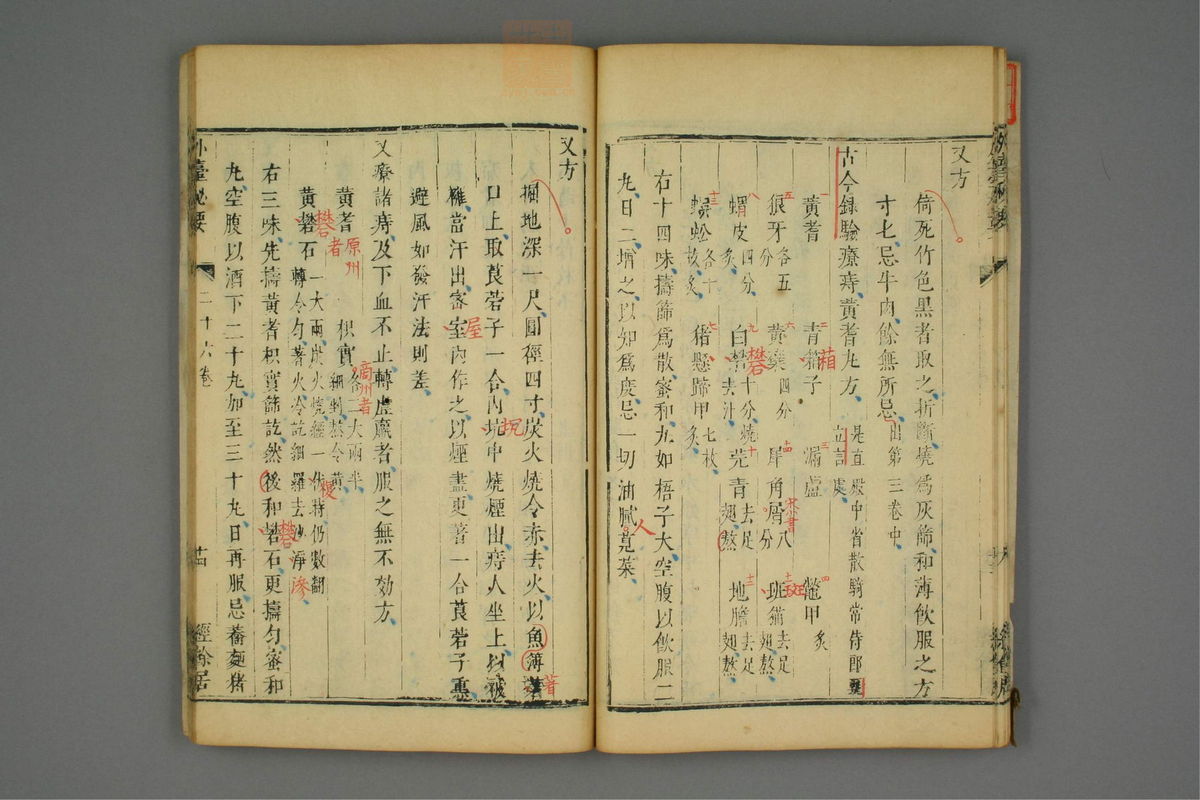 又方
倚死竹色黑者取之折斷燒爲灰篩和薄飲服之方
寸七忌牛肉餘無所忌出第三卷中
古今録驗療痔黃耆丸方是直殿中省散騎常侍郎甄立言處
黃耆 青箱子 漏盧 鼈甲炙
狼牙各五分 黃蘗四分 犀角屑八分 斑猫去足翅熬
蝟皮四分炙 白礬十分燒去汁 芫青去足翅熬 地膽去足翅熬
蜈蚣各十枚炙 猪懸蹄甲七枚炙
右十四味擣篩爲散蜜和丸如梧子大空腹以飲服二
丸日二增之以知爲度忌一切油膩莧菜
又方
掘地深一尺圓徑四寸炭火燒令赤去火以魚簿著
口上取莨菪子一合內坑中燒煙出痔人坐上以被
擁當汗出密室內作之以煙盡更著一合莨菪子熏
避風如發汗法則差
又療諸痔及下血不止轉虛羸者服之無不効方
黃耆 枳實各三大兩半細剉熬令黃
黃礬石一大兩炭火燒經一伏時仍數翻轉令勻著火冷訖細羅去沙淨
右三味先擣黃耆枳實篩訖然後和礬石更擣勻蜜和
丸空腹以酒下二十丸加至三十丸日再服忌蕎麵猪
外臺秘要
二十六卷
經餘居